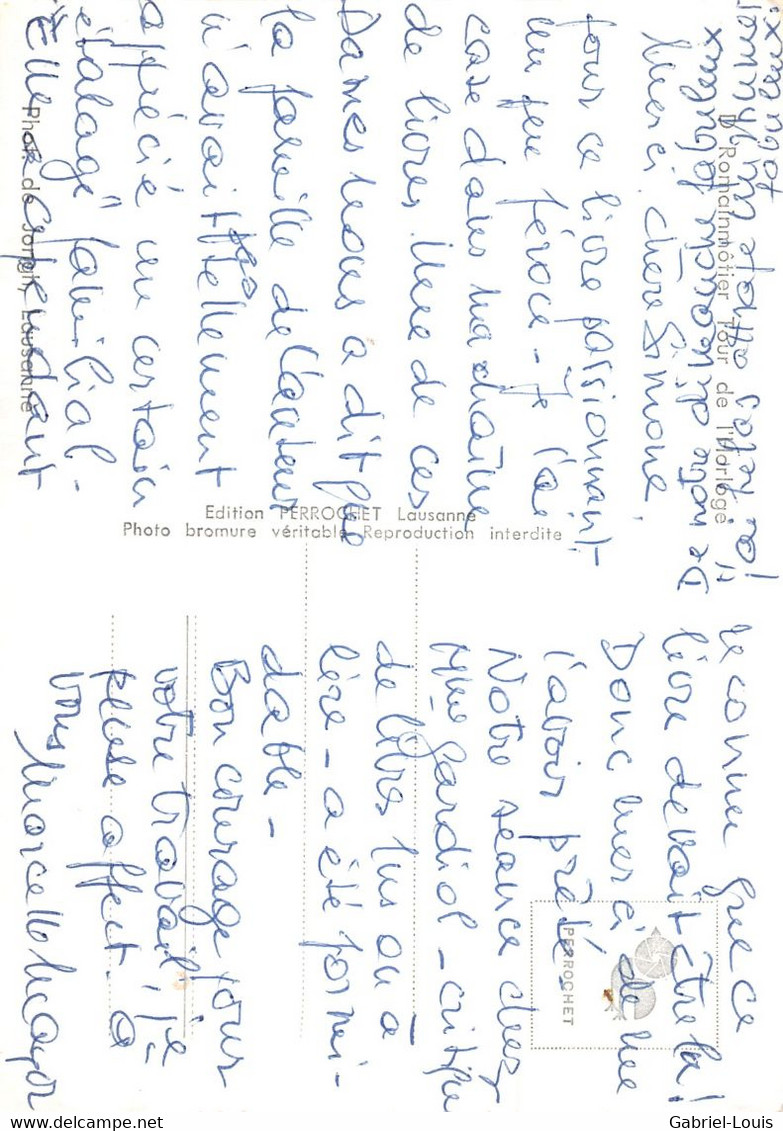 Merci, chère Simone
pour ce livre passionnant.
un peu féroce - Je l'ai
casé dans ma chaîne
de livres. Une de ces
Dames nous a dit que
la famille de l'auteur
n'avait pas tellement
apprécié un certain
"étalage" familial -
Elle a cependant
reconnu que ce
livre devait être là!
Donc merci de me
l'avoir prêté.
Notre séance chez
Mme Gardiol - critique
de livres lus ou à
lire - a été formi-
dable -
Bon courage pour
votre travail, je
pense affect. à
vous Marcelle Mayor
D Romainmôtier Tour de l'Horloge
Phot. de Jongh, Lausanne
Edition PERROCHET Lausanne
Photo bromure véritable Reproduction interdite
PERROCHET
Gabriel-Louis
delcampe.net